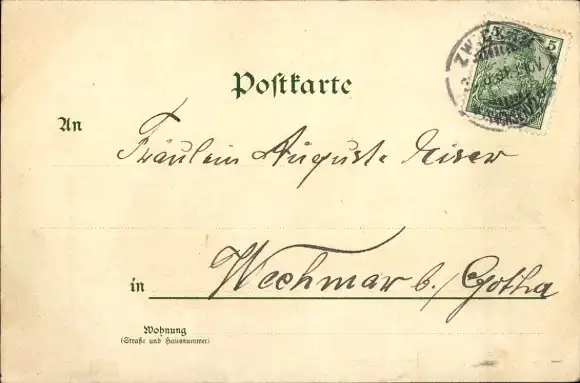 Postkarte
5
An
Fräulein Auguste Kiser
in Wechmar b./ Gotha
Wohnung
(Straße und Hausnummer)